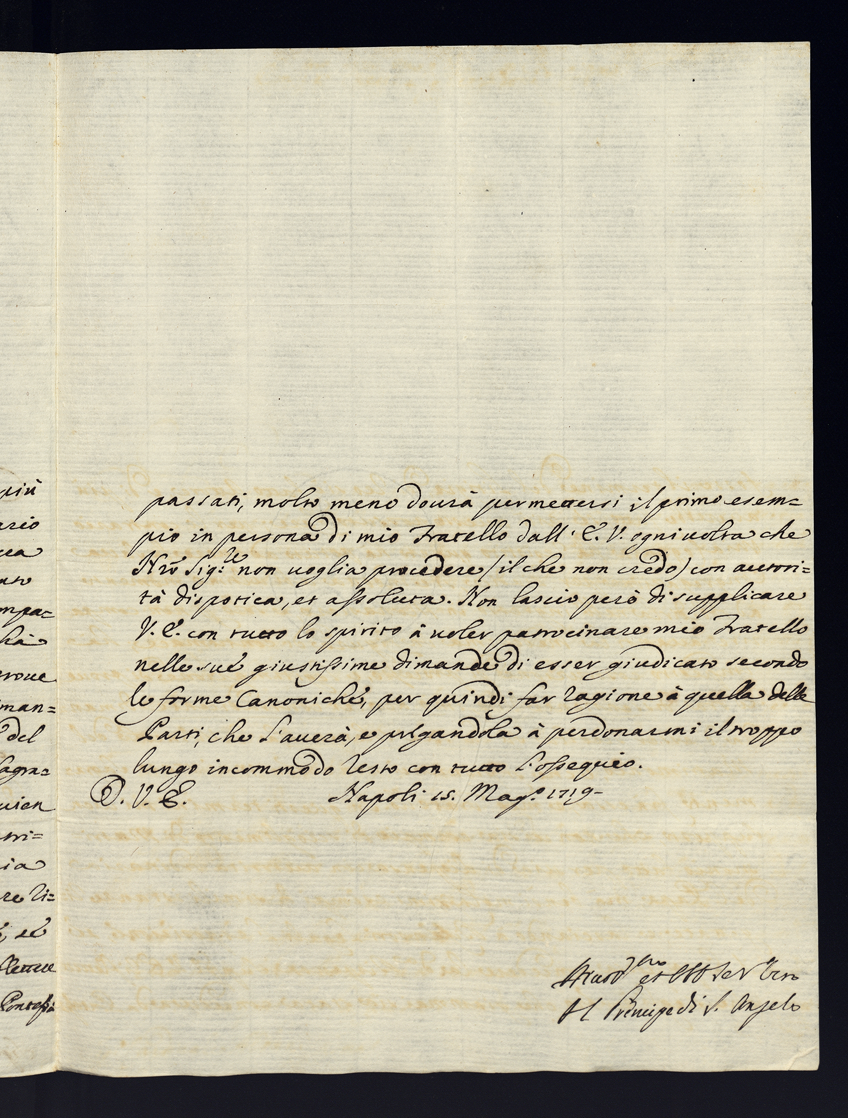 più
ario
cea
nto
mpa=
hà
troue
man=
del
sagra=
uien
tri=
ia
re li=
; et
lettere
Pontefi=
passati, molto meno dourà permettersi il primo esem=
pio in persona di mio Fratello dall' E. V. ogni uolta che
Nrō Sig:re non uoglia procedere (il che non credo) con autori=
tà dispotica, et assoluta. Non lascio però di supplicare
V. E. con tutto lo spirito à uoler patrocinare mio Fratello
nelle sue giustissime dimande di esser giudicato secondo
le forme Canoniche, per quindi far ragione à quella delle
Parti, che l'auerà, e pregandola à perdonarmi il troppo
lungo incommodo resto con tutto l'ossequio.
D. V. E. Napoli 15. Mag.o 1719-
et
Il Principe di S. Angelo